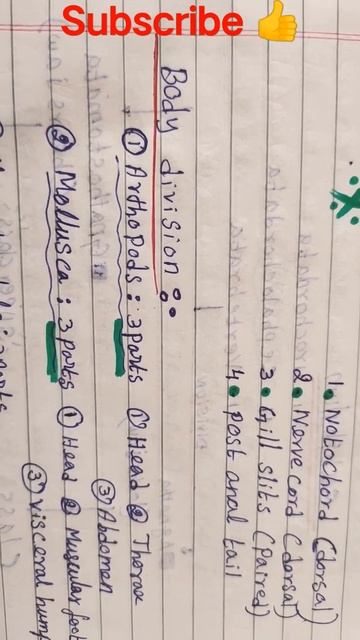 Subscribe 👍
1. Notochord (dorsal)
2. Nerve cord (dorsal)
3. Gill slits (paired)
4. post anal tail
Body division :
① Arthopods : 3 parts ① Head ② Thorax
③ Abdomen
② Mollusca : 3 parts ① Head ② Muscular foot
③ visceral hump